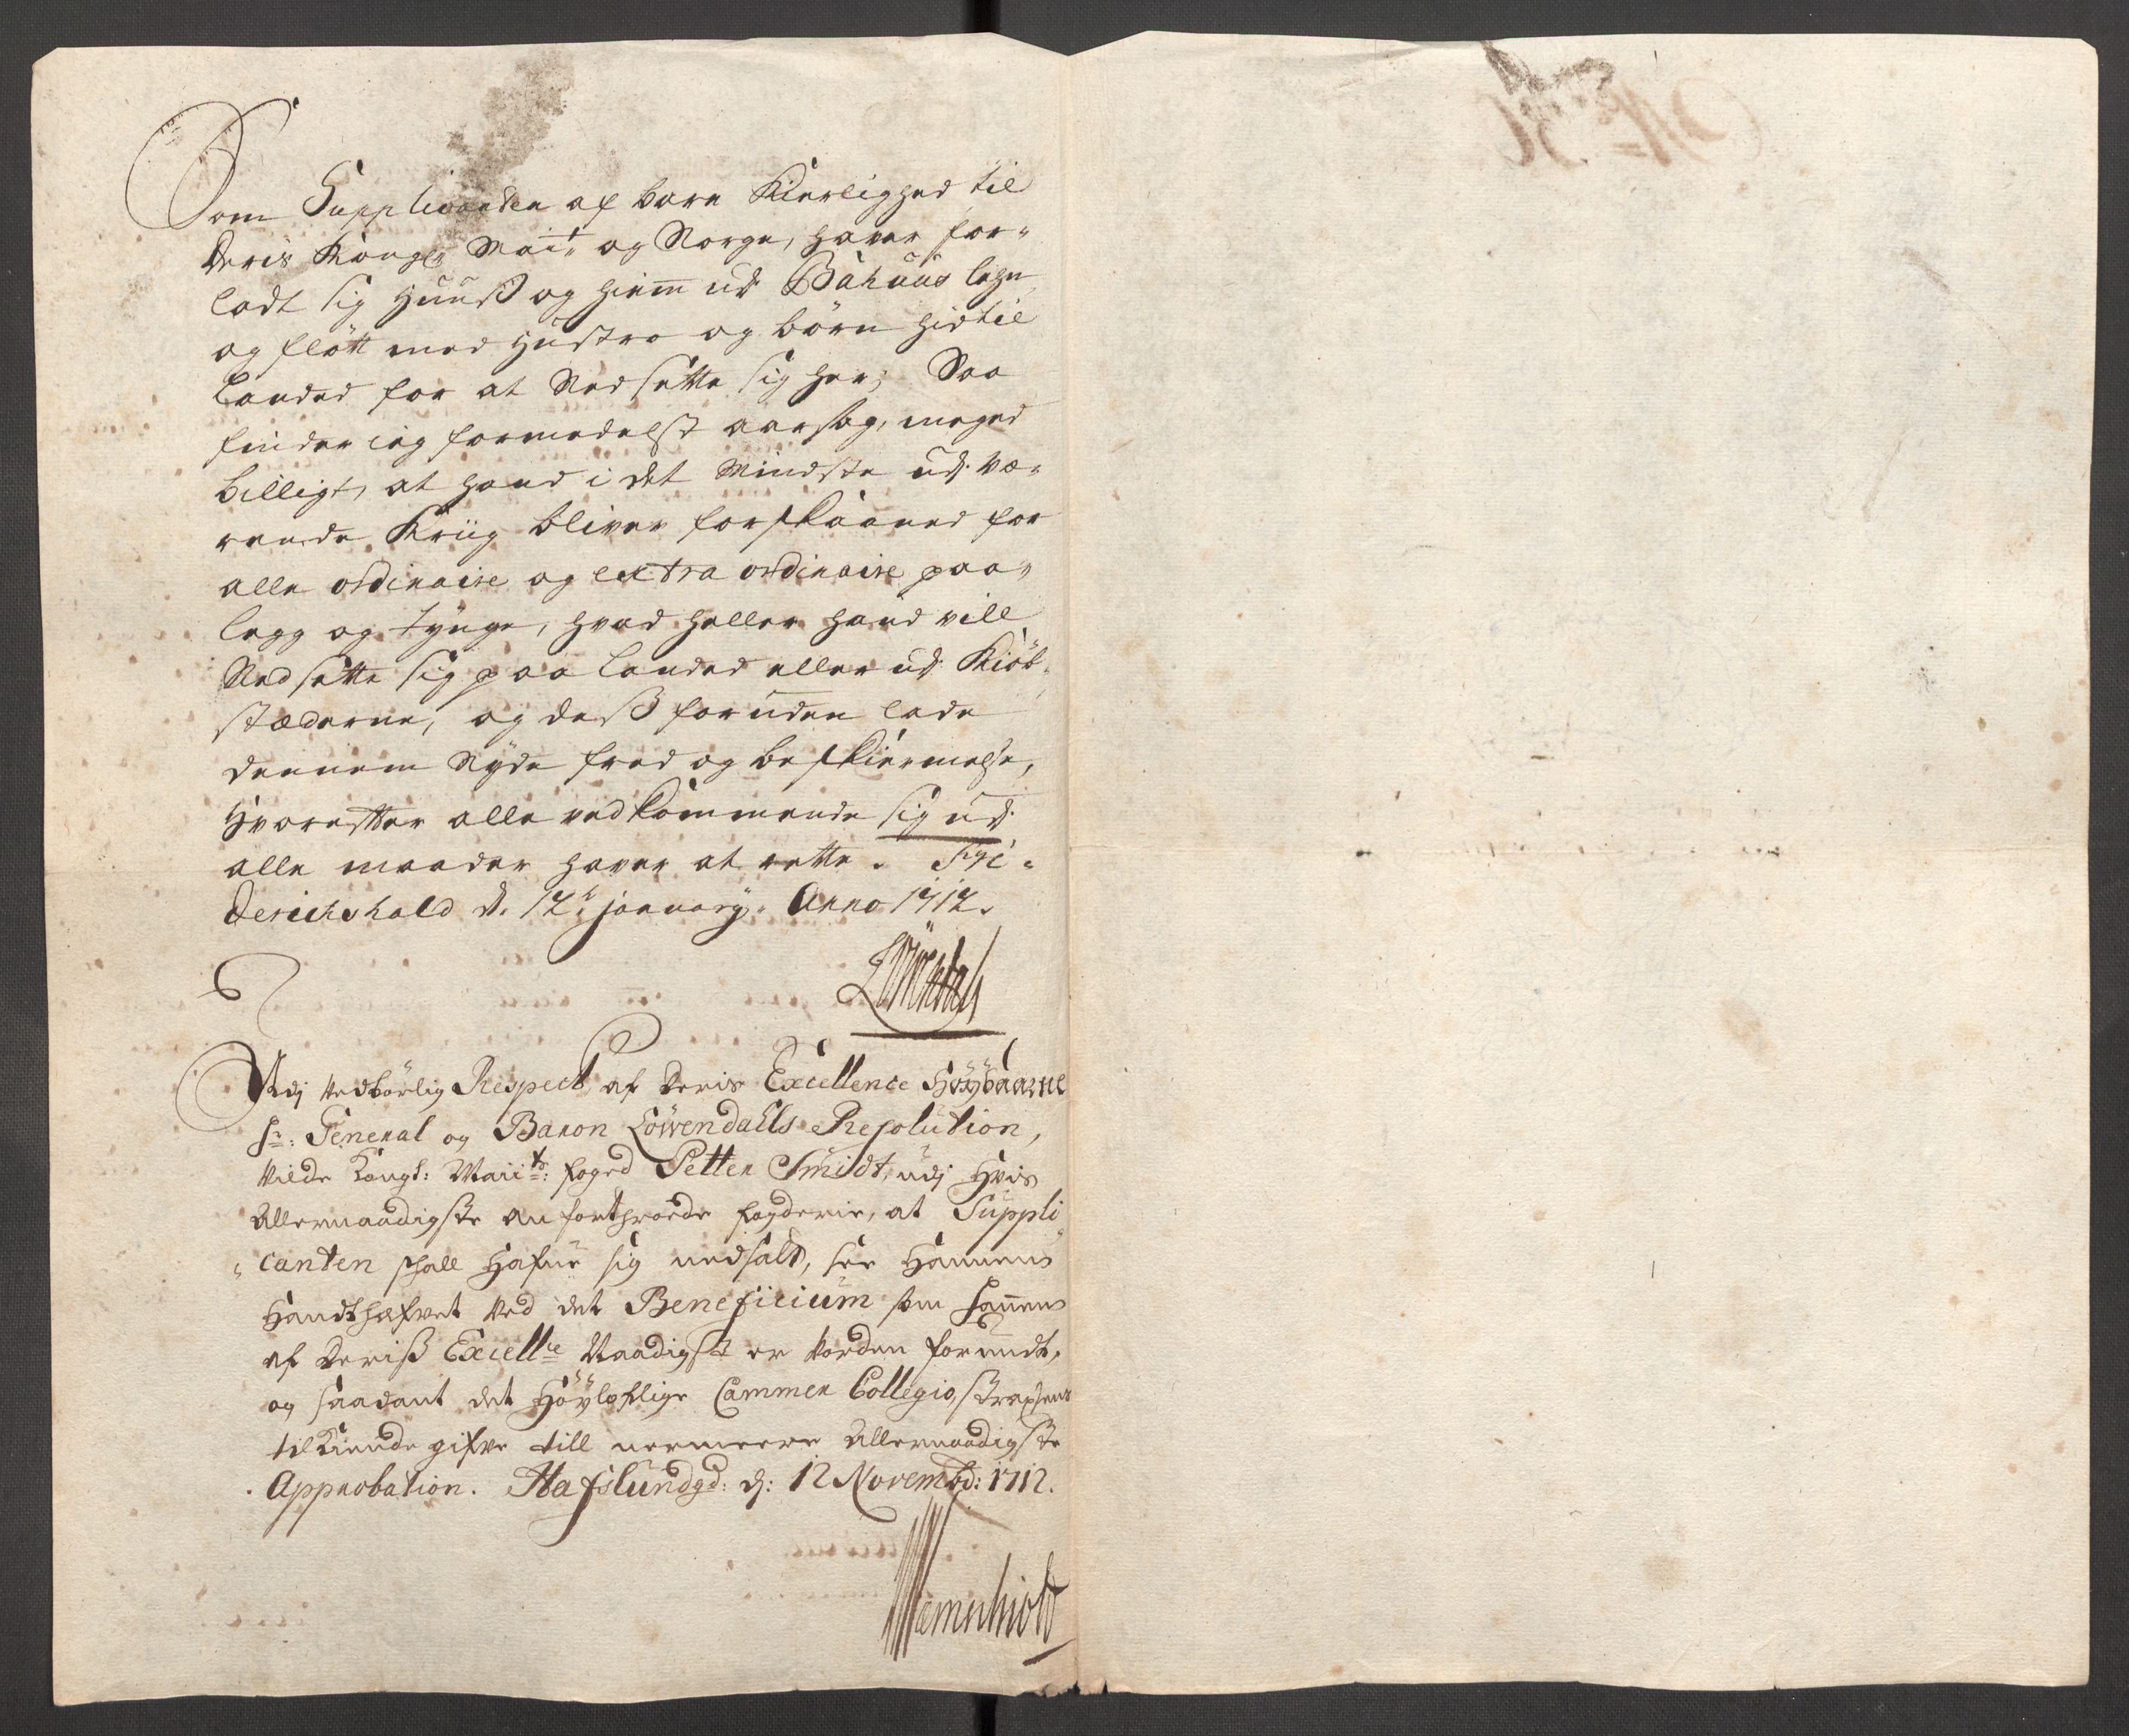 Som Supplicanten af bare Kierlighed til
deris Kongl: Mait: og Norge, haver for-
ladt sig Huuß og hiem udj Bahuus lehn
og flött med Hustro og börn hidtil
landed for at Nedsette sig her; Saa
finder ieg formedelst aarsag, meged
billigt, at hand i det Mindste udj væ-
rende Kriig bliver forskaaned for
alle ordinaire og extra ordinaire paa-
legg og tynge, hvad heller hand vill
Nedsette sig paa landed eller udj Kiöb-
stæderne, og deß foruden lade
dennem Nyde fred og beskiermelse,
Hvorefter alle vedkommende sig udj
alle maader haver at rette. Fri-
derichshald d. 12te january. Anno 1712.
Löwendahl
Udj Vedbörlig Respect af Deris Excellence Höybaarne
Hr: General og Baron Löwendahls Resolution,
Vilde Kongl: Maiits: foged Petter Smidt, udj Hvis
Allernaadigste anfortroede fogderie, at Suppli-
canten schall Hafue sig nedsatt, see Hannem
Handthæfvet Ved det Beneficium som Hannem
af Deriß Excellce Naadigst er Vorden forundt,
og saadant det Höyloflige Cammer Collegio, strax
tilkiende gifve till nermeere Allernaadigste
Approbation. Hafslundgd: dj: 12 Novembd: 1712.
Wernschiold